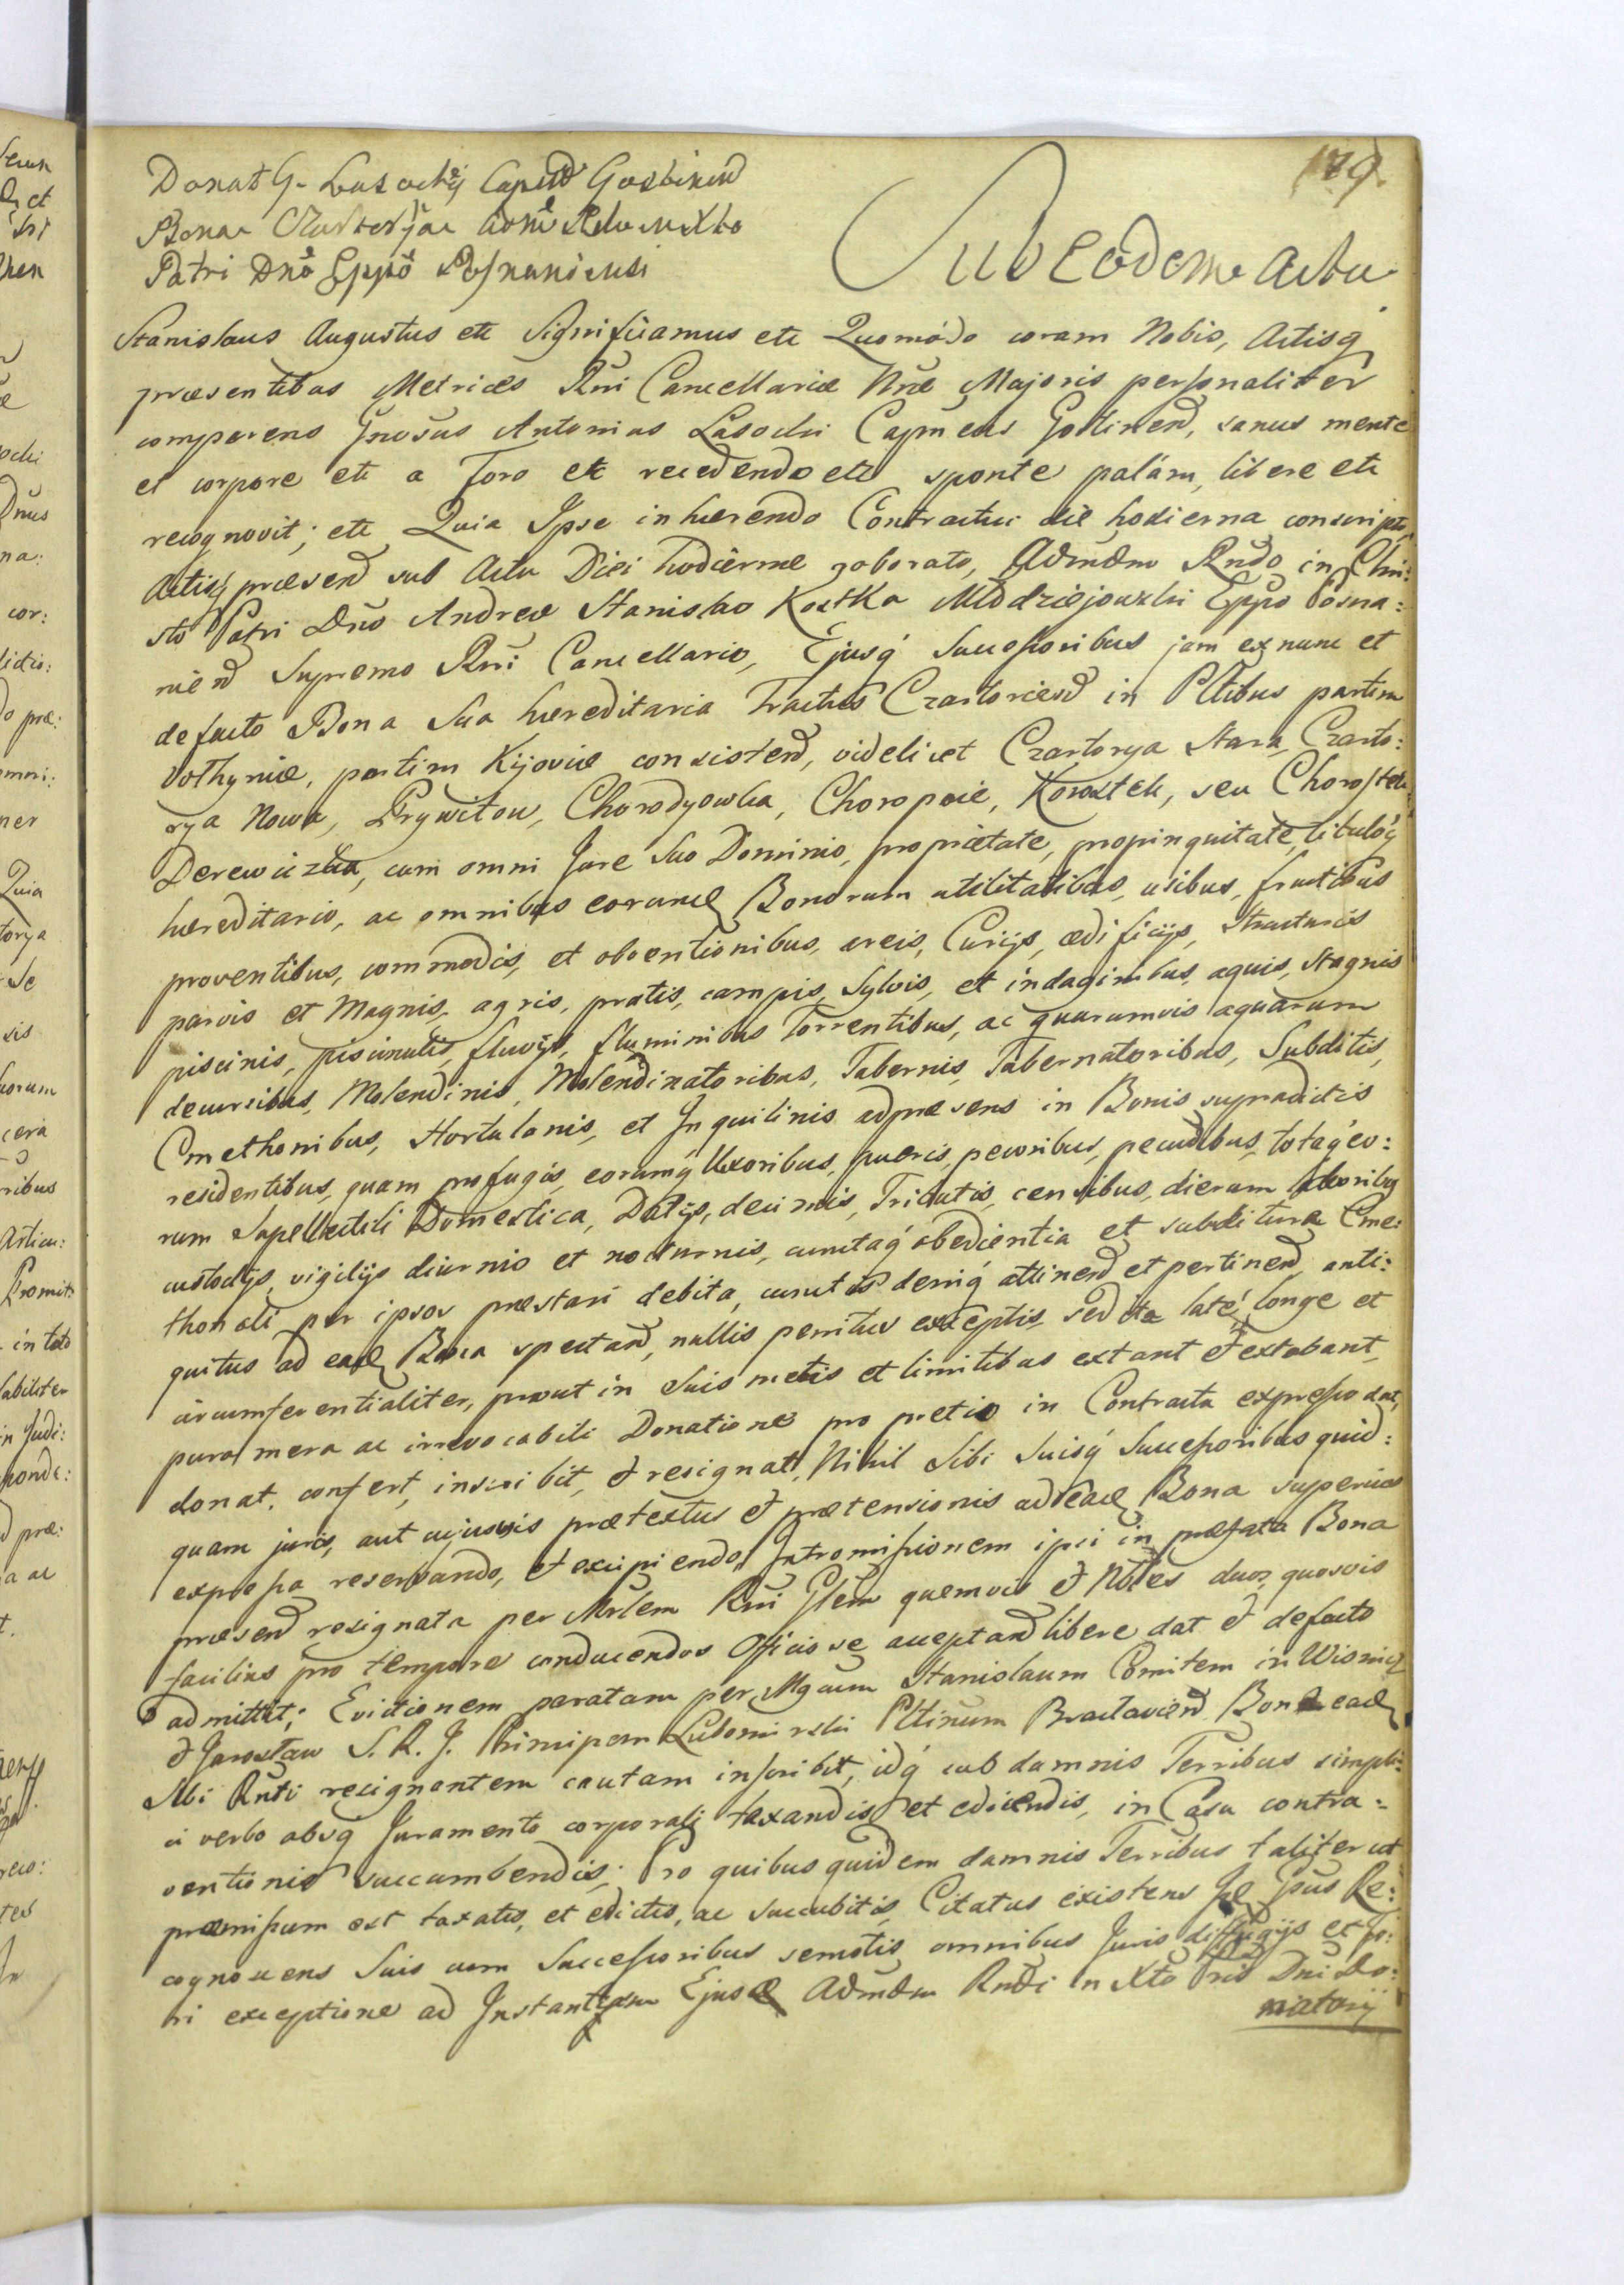 179.
Donat G. Lasockÿ Capnd Gostinend
Bona Czartorÿa Admd Rdo in Xto
Patri Dno Eppo Posnaniensi
Sub eodem Actu
Stanislaus Augustus etc Significamus etc Quomodo coram Nobis, Actisq
præsentibus Metrices Rni Cancellariæ Nræ Majoris personaliter
comparens Gnosus Antonius Lasocki Capneus Gostinend, sanus mente
et corpore etc a Foro etc recedendo etc sponte palam, libere etc
recognovit; etc Quia Ipse inhærendo Contractui die hodierna conscripto
Actisq præsend sub Actu Diei hodiernæ roborato, Admdm Rndo in Chri:
sto Patri Dno Andreæ Stanislao Kostka Młodziejowski Eppo Posna:
niend Supremo Rni Cancellario, Ejusq Successoribus jam ex nunc et
de facto Bona Sua hæreditaria Tractus Czartoriend in Pltibus partim
Volhyniæ, partim Kijoviæ consistend, videlicet Czartorya Stara, Czarto:
rya Nowa, Prywitow, Chorodyowka, Choropaie, Korostek, seu Chorostek,
Derewiczka, cum omni Jure Suo Dominio, proprietate, propinquitate, tituloq
hæreditario, ac omnibus eorund Bonorum utilitatibus, usibus, fructibus
proventibus, commodis, et obventionibus, areis, Curijs, ædificijs, Structuris
parvis et Magnis, agris, pratis, campis, Sylvis, et indaginibus, aquis, Stagnis
piscinis, piscinulis, fluvijs, fluminibus Torrentibus, ac quarumvis aquarum
decursibus, Molendinis, Molendinatoribus, Tabernis, Tabernatoribus, Subditis,
Cmethonibus, Hortulanis, et Inquilinis adpræsens in Bonis supradictis
residentibus, quam profugis, eorumq Uxoribus, pueris, pecoribus, pecudibus, totaq eo:
rum Supellectili Domestica, Datijs, decimis, Tributis, censibus, dierum laboribus
custodijs, vigilijs diurnis et nocturnis, cunctaq obedientia et subditura Cme:
thonali per ipsos præstari debita, cunctis deniq attinend et pertinend, anti:
quitus ad ead Bona spectand, nullis penitus exceptis, sed ita late, longe et
circumferentialiter, prout in Suis metis et limitibus extant et extabant,
pura mera ac irrevocabili Donatione pro pretio in Contractu expresso dat,
donat, confert, inscribit, et resignat, Nihil Sibi Suisq Successoribus quid:
quam juris, aut cujusvis prætextus et prætensionis ad ead Bona superius
expressa reservando, et excipiendo. Intromissionem ipsi in præfata Bona
præsend resignata per Mrlem Rni Glem quemvis et Nbles duos quosvis
facilius pro tempore conducendos Officiose acceptand libere dat et defacto
admittit; Evictionem paratam per Mgcum Stanislaum Comitem in Wisnicz
et Jarosław S. R. J. Principem Lubomirski Pltinum Braclaviend Bona ead
Sibi Rnti resignantem cautam inscribit, idq sub damnis Terribus simpli:
ci verbo absq Juramento corporali taxandis et edicendis, in Casu contra:
ventionis succumbendis; Pro quibus quidem damnis Terribus taliter ut
præmissum est taxatis, et edictis, ac succubitis, Citatus existens Id Ipsus Re:
cognoscens Suis cum Successoribus semotis omnibus Juris diffugijs et fo:
ri exceptione ad Instantiam Ejusd Admdm Rndi in Xto Pris Dni Do:
natorij